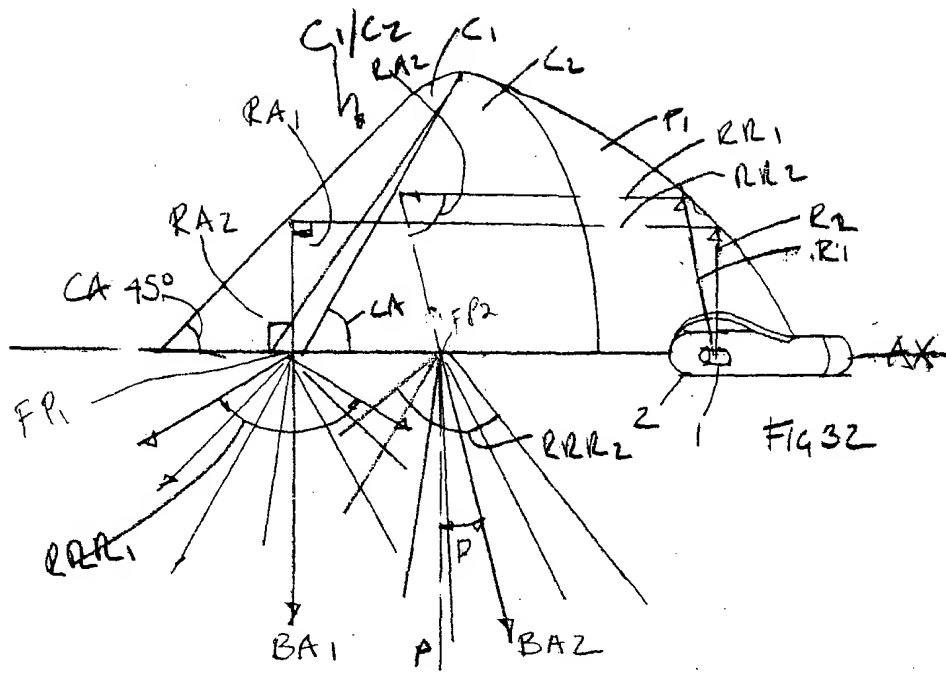 C1/C2
C1
RA2
C2
RA1
P1
RR1
RR2
RA2
R2
R1
CA 45°
CA
FP2
AX
FP1
2
1
FIG 32
RRR2
RRR1
P
BA1
P
BA2